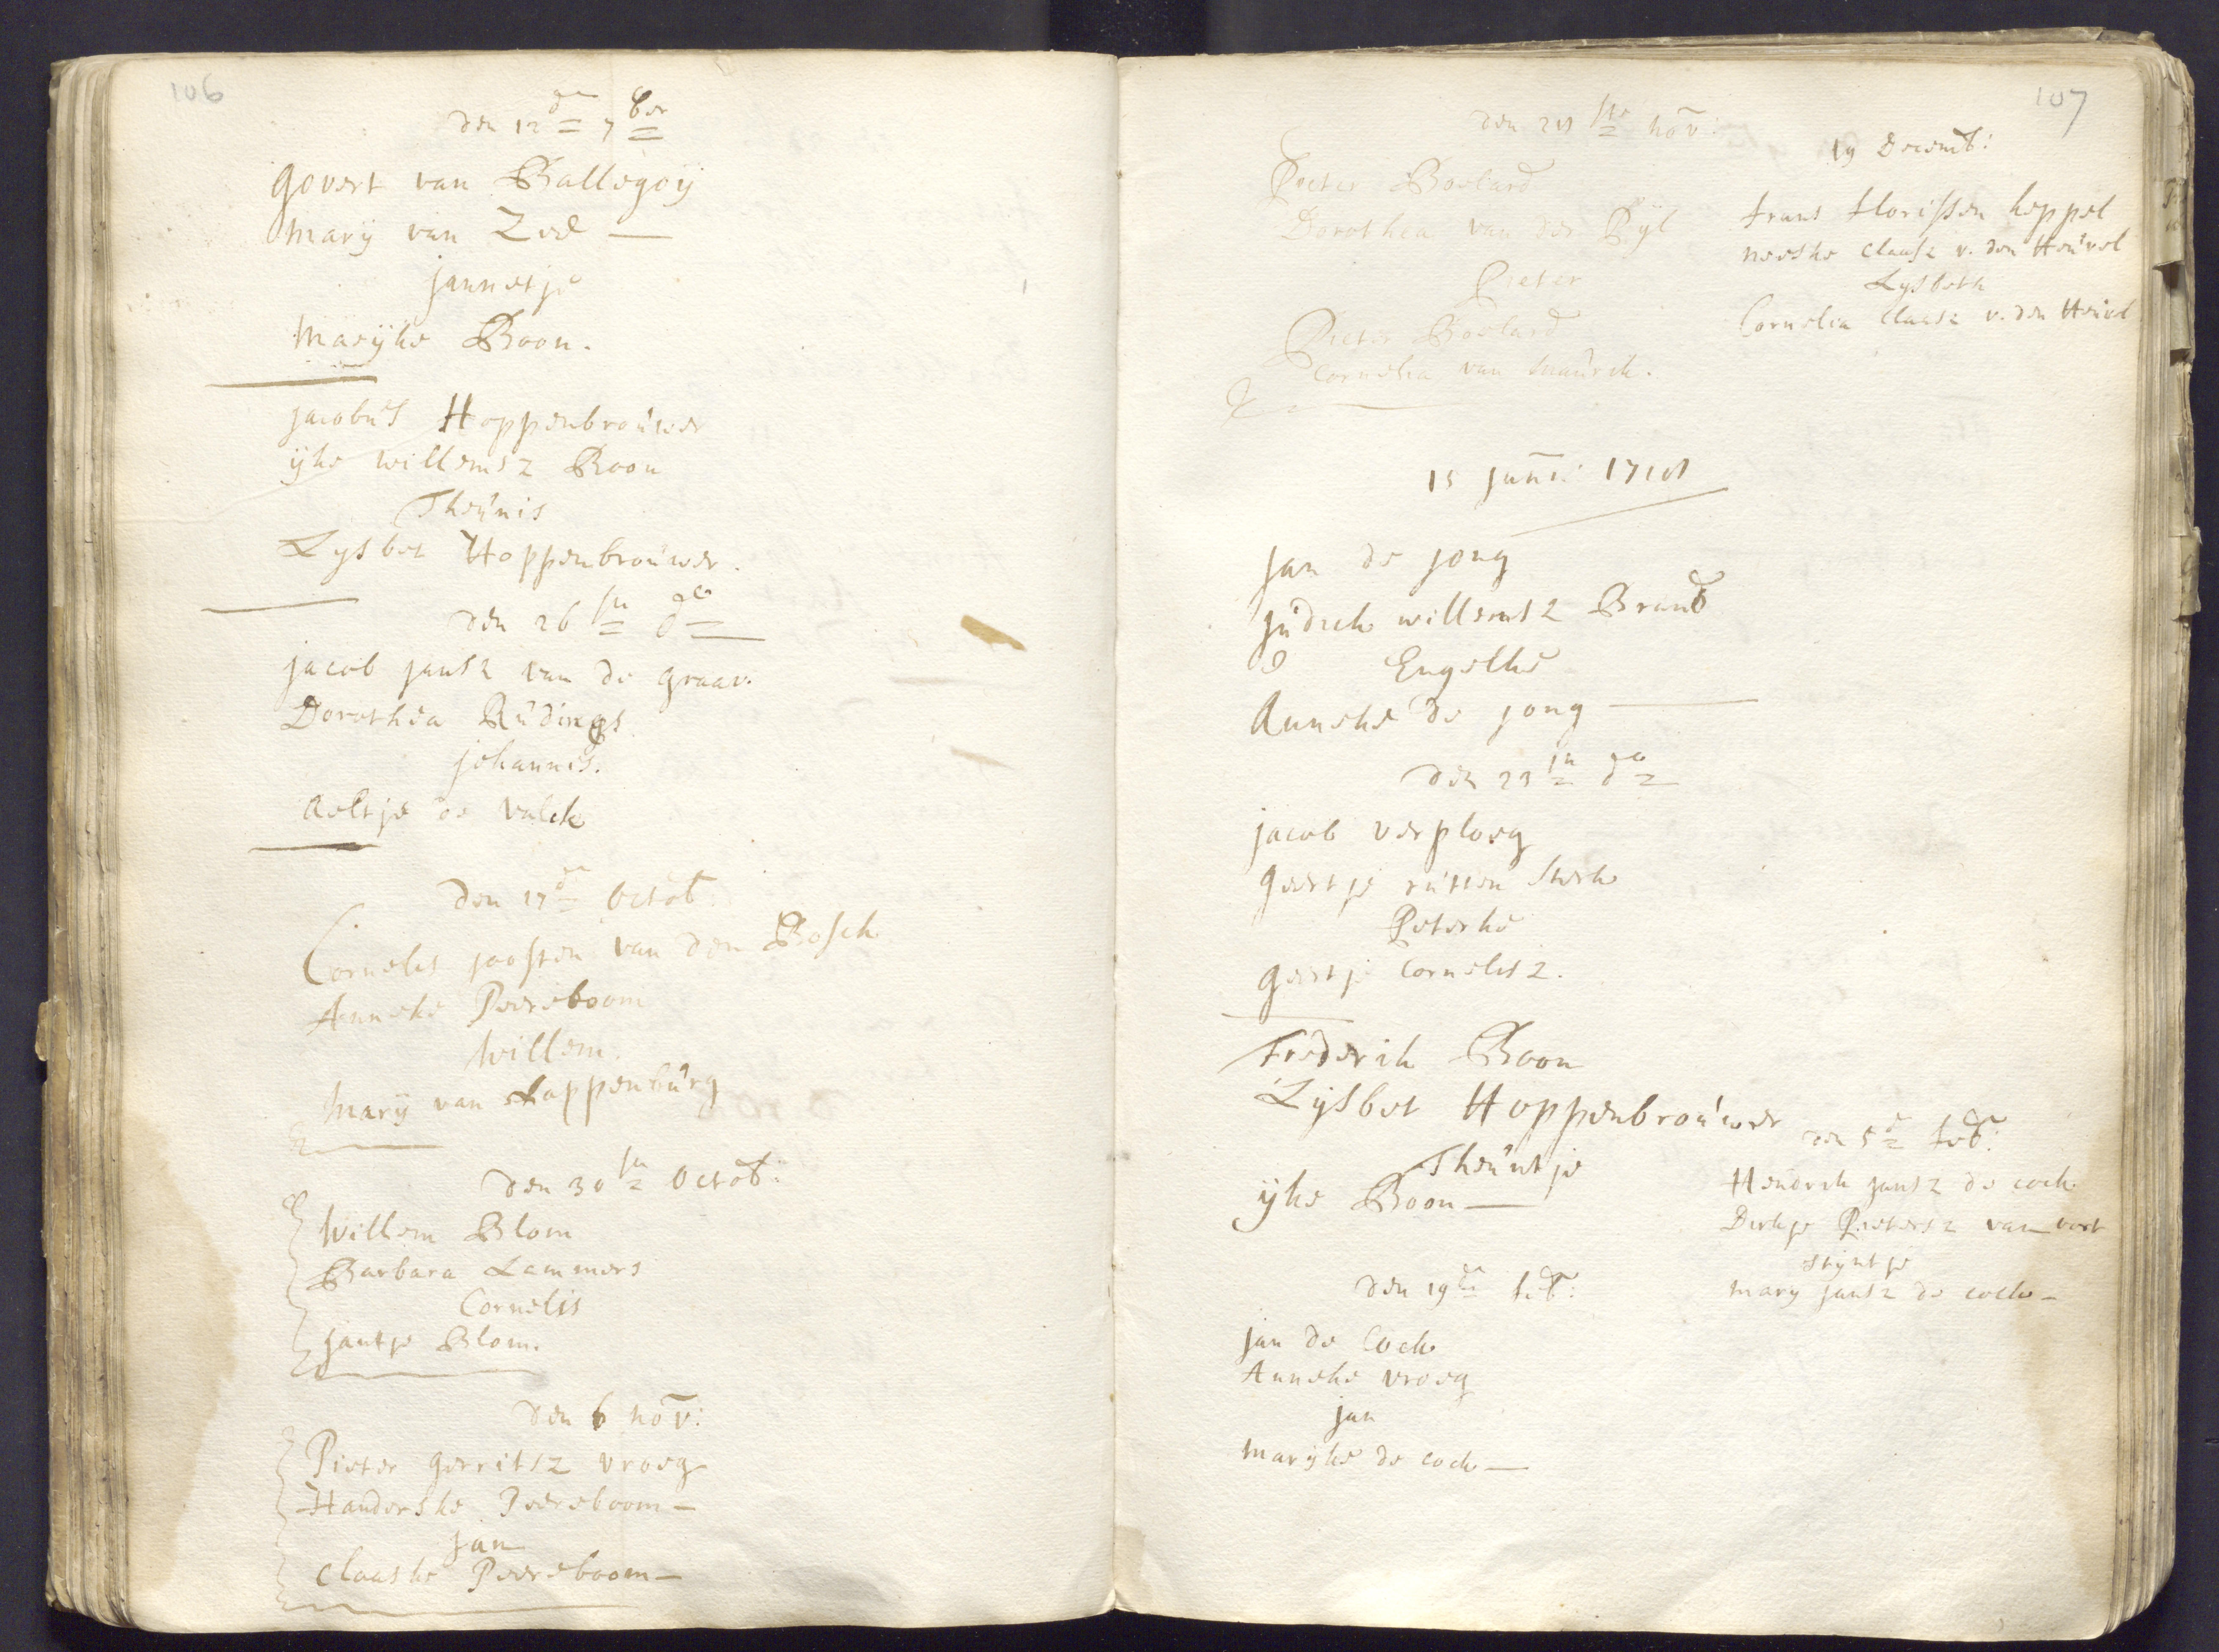 106
den 12de 7ber
Govert van Ballegoij
Marij van Zee
jannetje
Marijke Boon.
jacobus Hoppenbrouwer
ijke willemsz Boon
Theunis
Lysbet Hoppenbrouwer.
den 26ste do
jacob jansz van de graav.
Dorothea Rudings
johannes.
Aeltje de Valck
den 17de Octob:
Cornelis joosten van den Bosch
Anneke Peereboom
Willem.
Marij van Loppenburg
den 30ste Octob:
Willem Blom
Barbara Lammers
Cornelis
jantje Blom.
den 6 nov:
Pieter gerritsz vroeg
Handerske Peereboom
jan
Claaske Peereboom
107
den 21ste nov:
Pieter Boelard
Dorothea van der Pyl
Pieter
Pieter Boelard
Cornelia van
19 Decemb:
frans florissen keppel
neeske Claasz v. den Heuvel
Lysbeth
Cornelia Claasz v. den Heuvel
15 janu: 1718
jan de jong
judick willemsz Brand
Engelke
Anneke de jong
den 23ste do
jacob verploeg
geertje rutten sterk
Peterke
geertje Cornelisz.
Frederik Boon
Lijsbet Hoppenbrouwer
Theuntje
ijke Boon
den 5de feb:
Hendrik jansz de cock
Dirkje Pietersz van oort
stijntje
mary jansz de cock
den 19de feb:
jan de Cock
Anneke vroeg
jan
marijke de cock